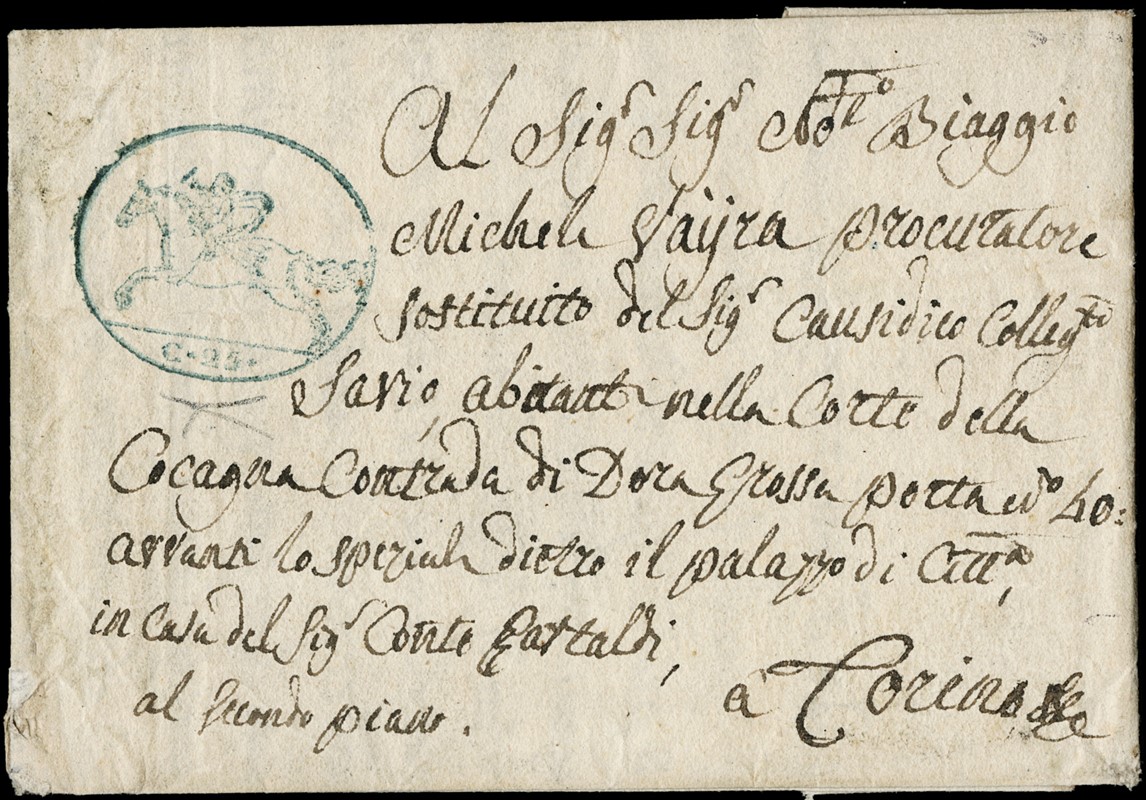 Al Sig.r Sig.r Not.o Biaggio
Michele Vaÿra procuratore
C. 25.
sostituito del Sig.r Causidico Colleg.to
Savio, abitante nella Corte della
Cocagna Contrada di Dora Grossa porta N.o 40:
avvanti lo speziale dietro il palazzo di Città,
in Casa del Sig.r Conte Gastaldi,
al secondo piano.
a Torino